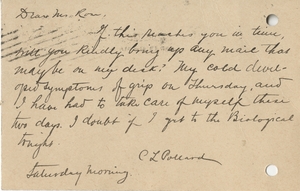 Dear Mr. Row,
If this reaches you in time,
will you kindly bring up any mail that
may be on my desk? My cold devel-
oped symptoms of grip on Thursday, and
I have had to take care of myself these
two days. I doubt if I get to the Biological
tonight.
C L Pollard
Saturday Morning.